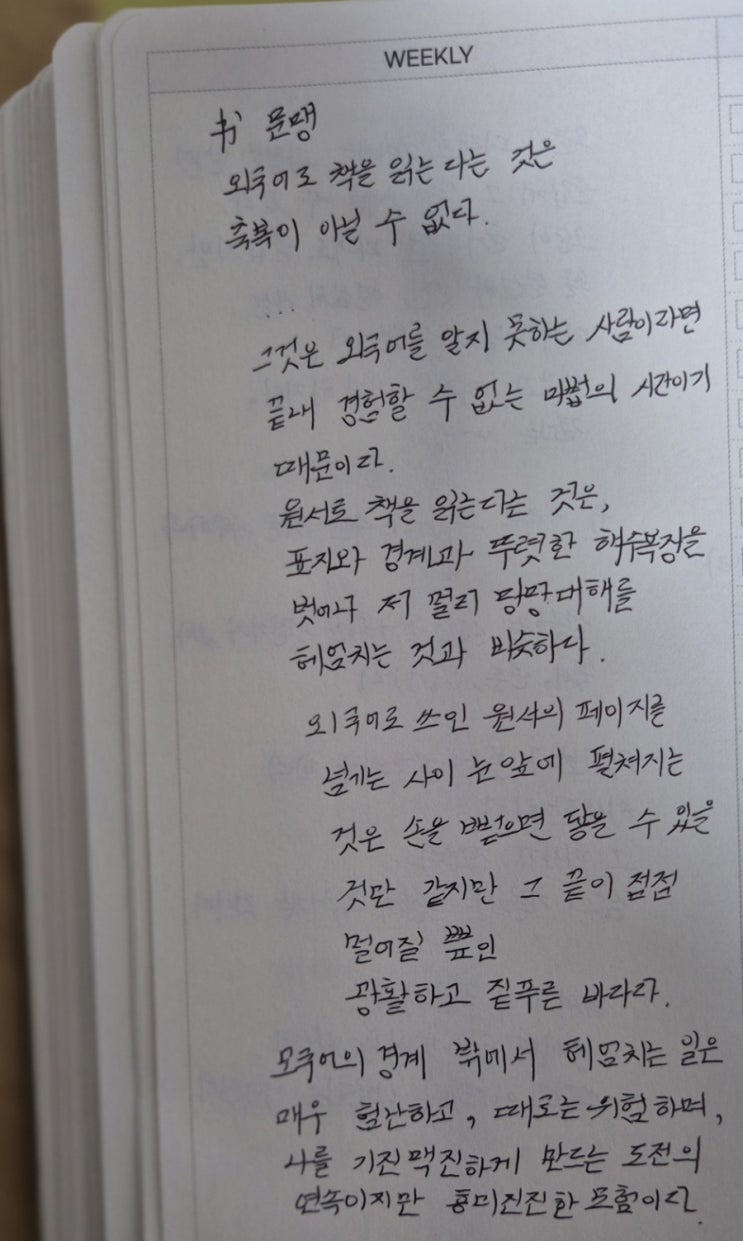 WEEKLY
书 문맹
외국어로 책을 읽는 다는 것은
축복이 아닐 수 없다.
...
그것은 외국어를 알지 못하는 사람이라면
끝내 경험할 수 없는 마법의 시간이기
때문이다.
원서로 책을 읽는다는 것은,
표지와 경계과 뚜렷한 해수욕장을
벗어나 저 멀리 망망대해를
헤엄치는 것과 비슷하다.
외국어로 쓰인 원서의 페이지를
넘기는 사이 눈앞에 펼쳐지는
것은 손을 뻗으면 닿을 수 있을
것만 같지만 그 끝이 점점
멀어질 뿐인
광활하고 짙푸른 바다라.
모국어의 경계 밖에서 헤엄치는 일은
매우 험난하고, 때로는 위험하며,
나를 기진맥진하게 만드는 도전의
연속이지만 흥미진진한 모험이다.